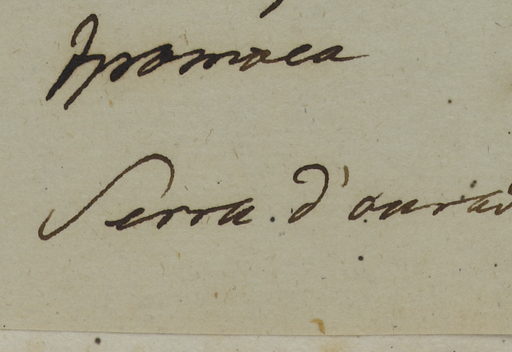 Ipomoea
Serra d'ourai